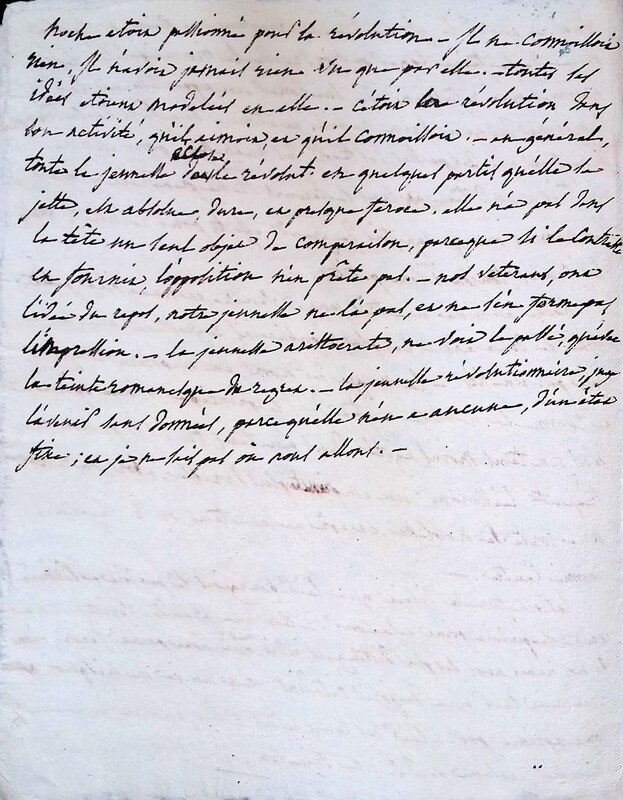 hoche etoit passionné pour la révolution – Il ne connoissoit
rien, Il n'avoit jamais rien vu que par elle. – toutes ses
idées etoient modelées en elle. – c'étoit la révolution dans
son activité, qu'il aimoit, et qu'il connoissoit. – en général,
éclose
toute la jeunesse de la révolut. en quelques partis qu'elle se
jette, est absolue, dure, et presque feroce, elle n'a pas dans
la tête un seul objet de comparaison, parceque si la
en fournit, l'opposition n'en prête pas. – nos veterans, ont
l'idée du repos, notre jeunesse ne l'a pas, et ne s'en forme pas
l'impression. – la jeunesse aristocrate, ne voit le passé, qu'avec
la teinte romanesque du regret. – la jeunesse révolutionnaire, juge
l'avenir sans données, parce qu'elle n'en a aucune, d'un état
fixe ; et je ne sais pas où nous allons. –